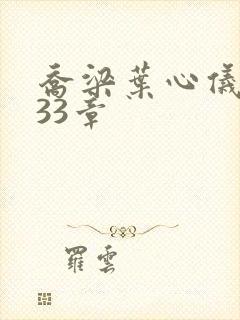 喬梁葉心儀
33章
羅雲